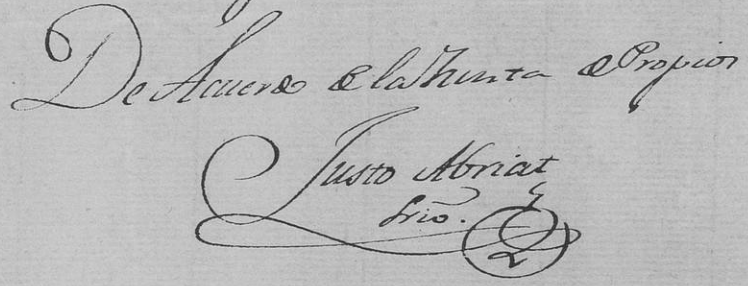 De Acuerdo de la Junta de Propios
Justo Abriat
Srio.